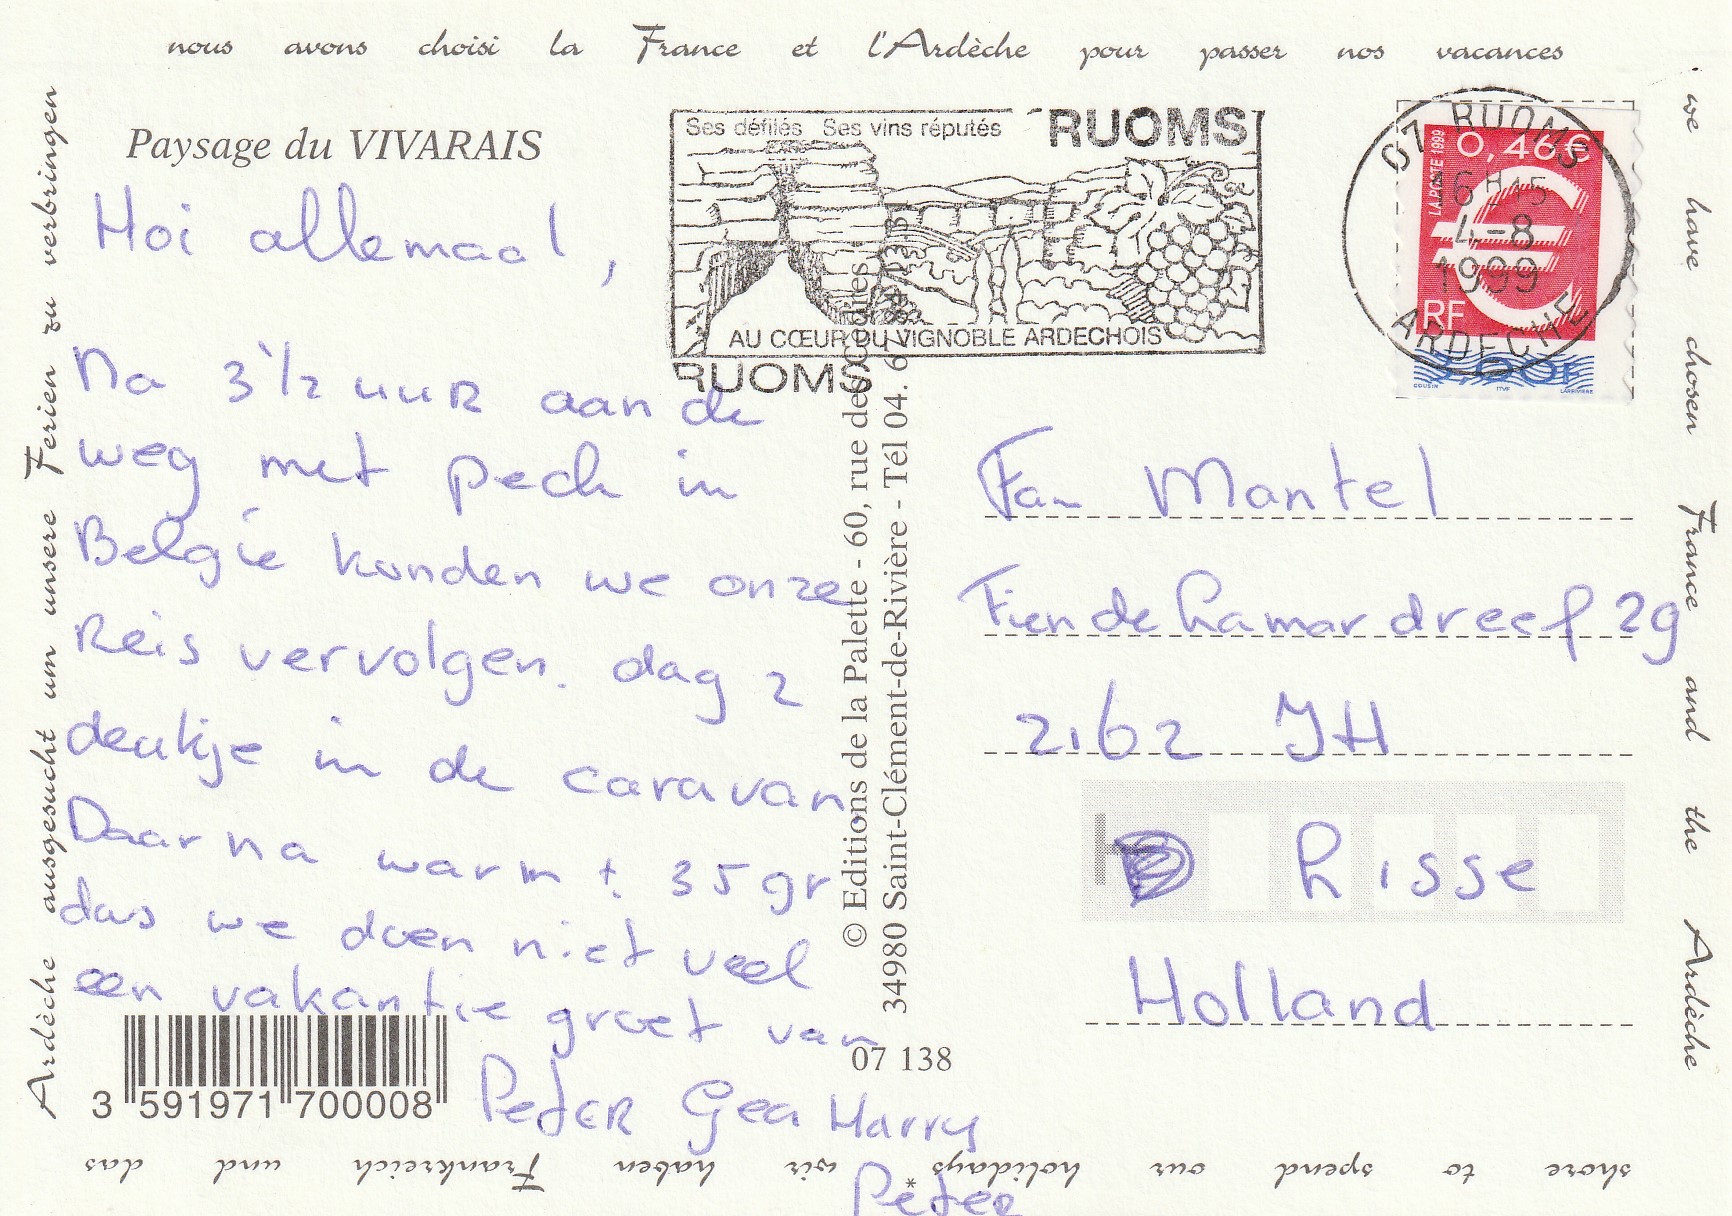 nous avons choisi la France et l'Ardèche pour passer nos vacances
we have chosen France and the Ardèche
shore to spend our holidays * wir haben Frankreich und das
Ardèche ausgesucht um unsere Ferien zu verbringen
Paysage du VIVARAIS
Hoi allemaal,
Na 3 1/2 uur aan de
weg met pech in
Belgie konden we onze
Reis vervolgen. dag 2
deukje in de caravan
Daar na warm ± 35 gr
dus we doen niet veel
een vakantie groet van
Peter Gea Harry
Peter
3 591971 700008
© Editions de la Palette - 60, rue des
34980 Saint-Clément-de-Rivière - Tél 04. 67
07 138
Ses défilés Ses vins réputés RUOMS
AU CŒUR DU VIGNOBLE ARDECHOIS
RUOMS
07 RUOMS
16 H 15
4-8
1999
ARDECHE
LA POSTE 1999
0,46 €
RF
3,00F
COUSIN ITVF LARRIVIERE
Fam Mantel
Fien de la mar dreef 29
2162 JH
Lisse
Holland